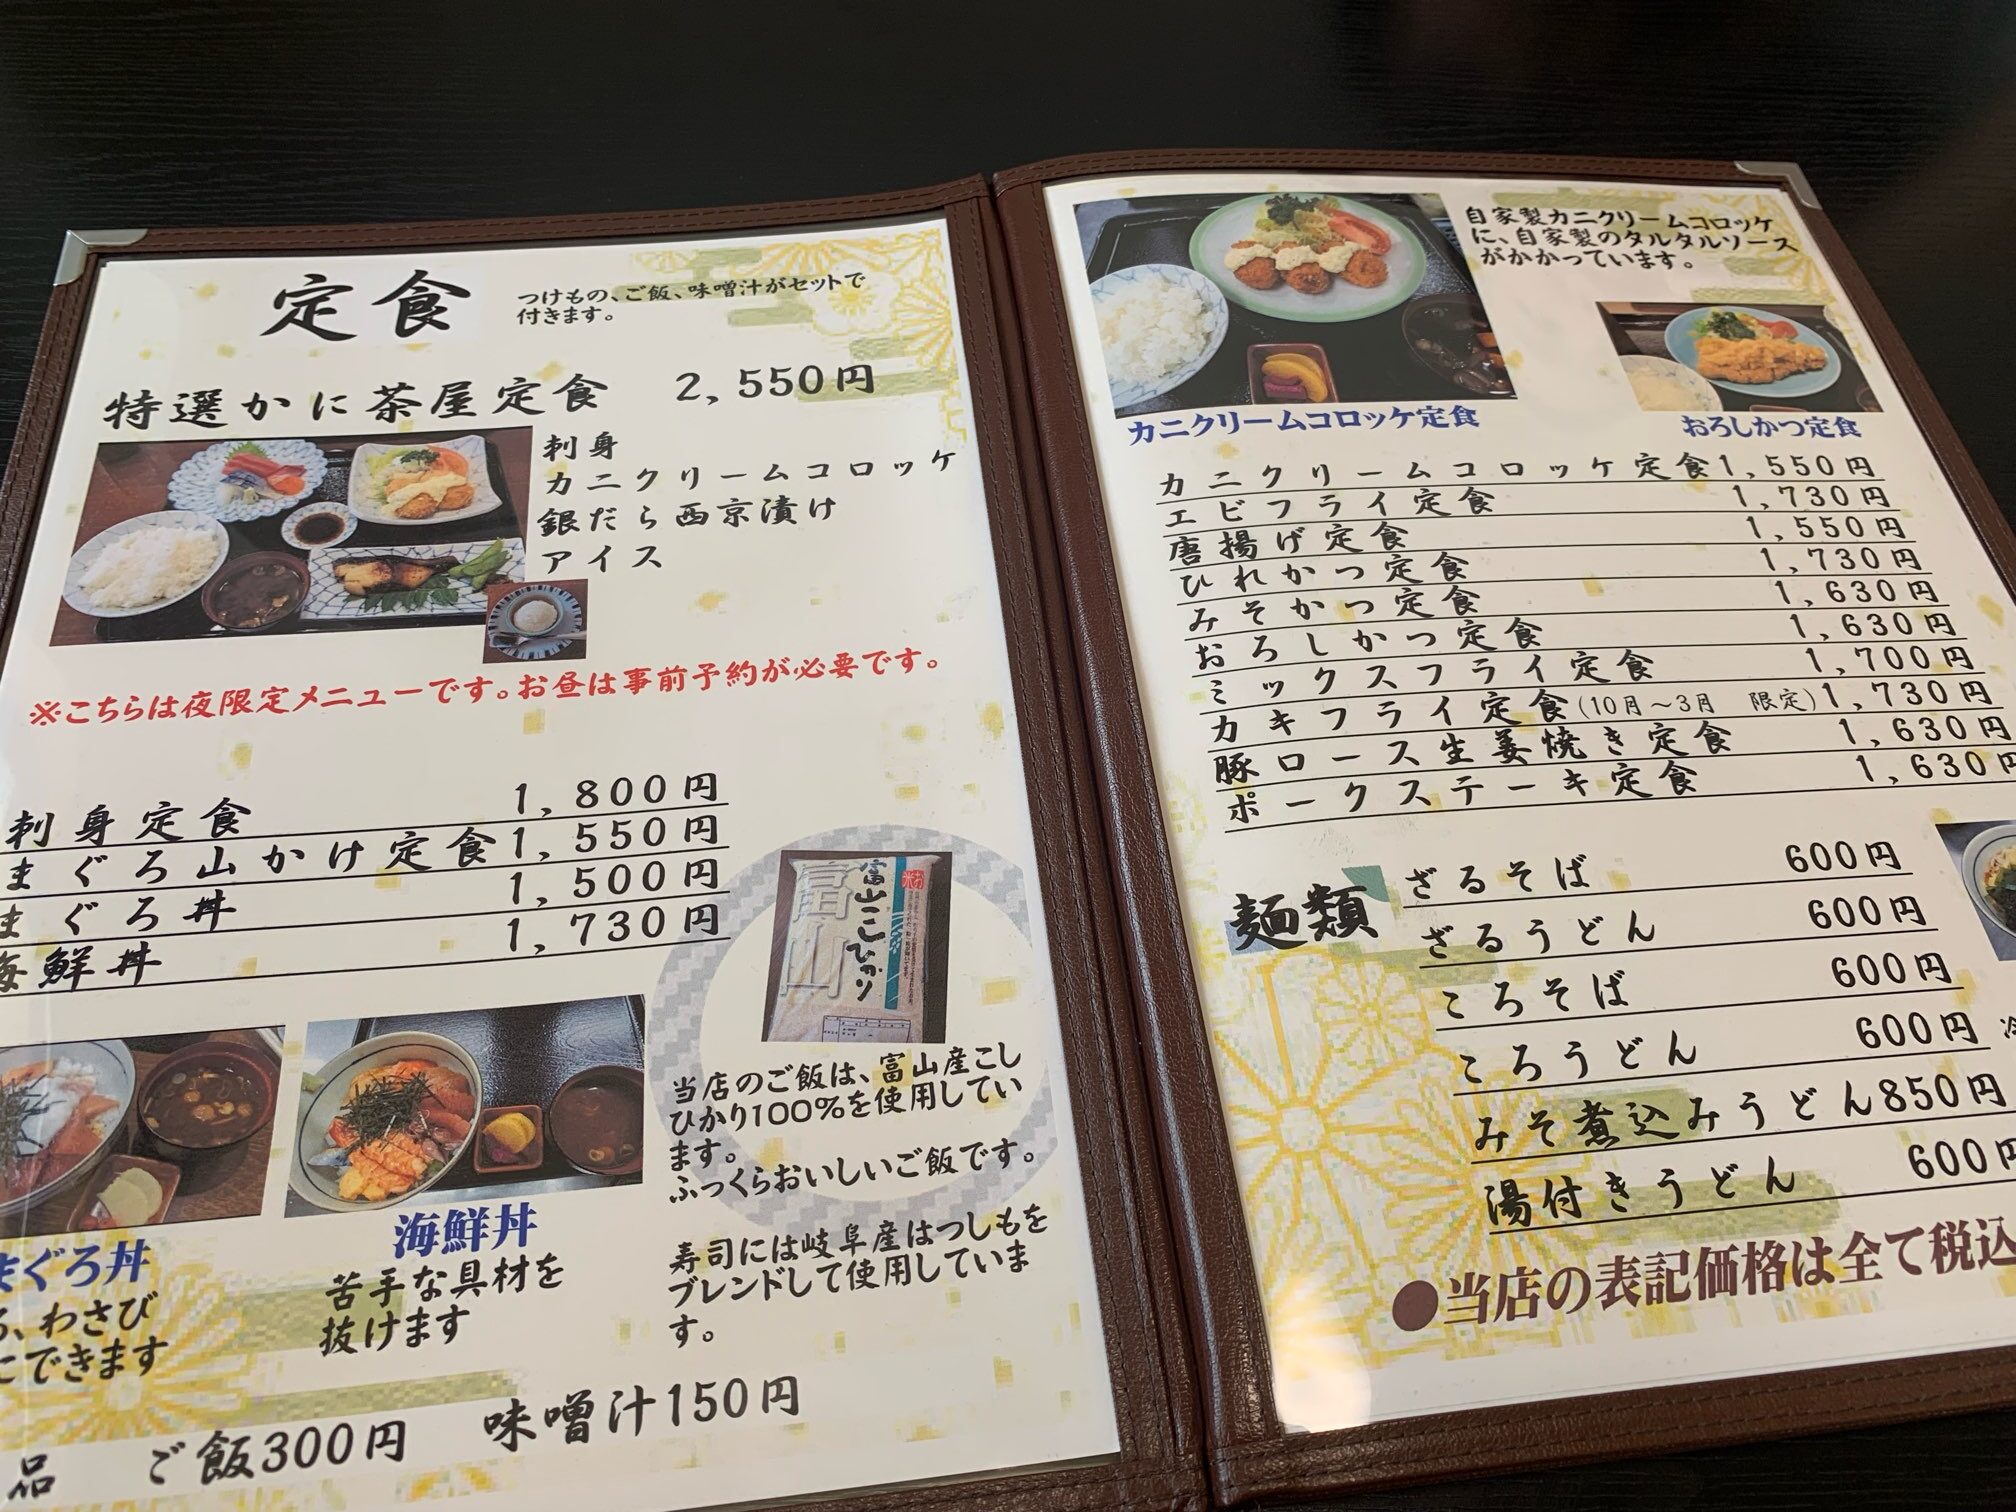 定食
つけもの、ご飯、味噌汁がセットで
付きます。
特選かに茶屋定食 2,550円
刺身
カニクリームコロッケ
銀だら西京漬け
アイス
※こちらは夜限定メニューです。お昼は事前予約が必要です。
刺身定食 1,800円
まぐろ山かけ定食 1,550円
まぐろ丼 1,500円
海鮮丼 1,730円
富山
富山こしひかり
当店のご飯は、富山産こし
ひかり100%を使用してい
ます。
ふっくらおいしいご飯です。
寿司には岐阜産はつしもを
ブレンドして使用していま
す。
まぐろ丼
、わさび
にできます
海鮮丼
苦手な具材を
抜けます
品 ご飯300円 味噌汁150円
自家製カニクリームコロッケ
に、自家製のタルタルソース
がかかっています。
カニクリームコロッケ定食
おろしかつ定食
カニクリームコロッケ定食 1,550円
エビフライ定食 1,730円
唐揚げ定食 1,550円
ひれかつ定食 1,730円
みそかつ定食 1,630円
おろしかつ定食 1,630円
ミックスフライ定食 1,700円
カキフライ定食(10月～3月 限定) 1,730円
豚ロース生姜焼き定食 1,630円
ポークステーキ定食 1,630円
麺類
ざるそば 600円
ざるうどん 600円
ころそば 600円
ころうどん 600円
みそ煮込みうどん 850円
湯付きうどん 600円
●当店の表記価格は全て税込